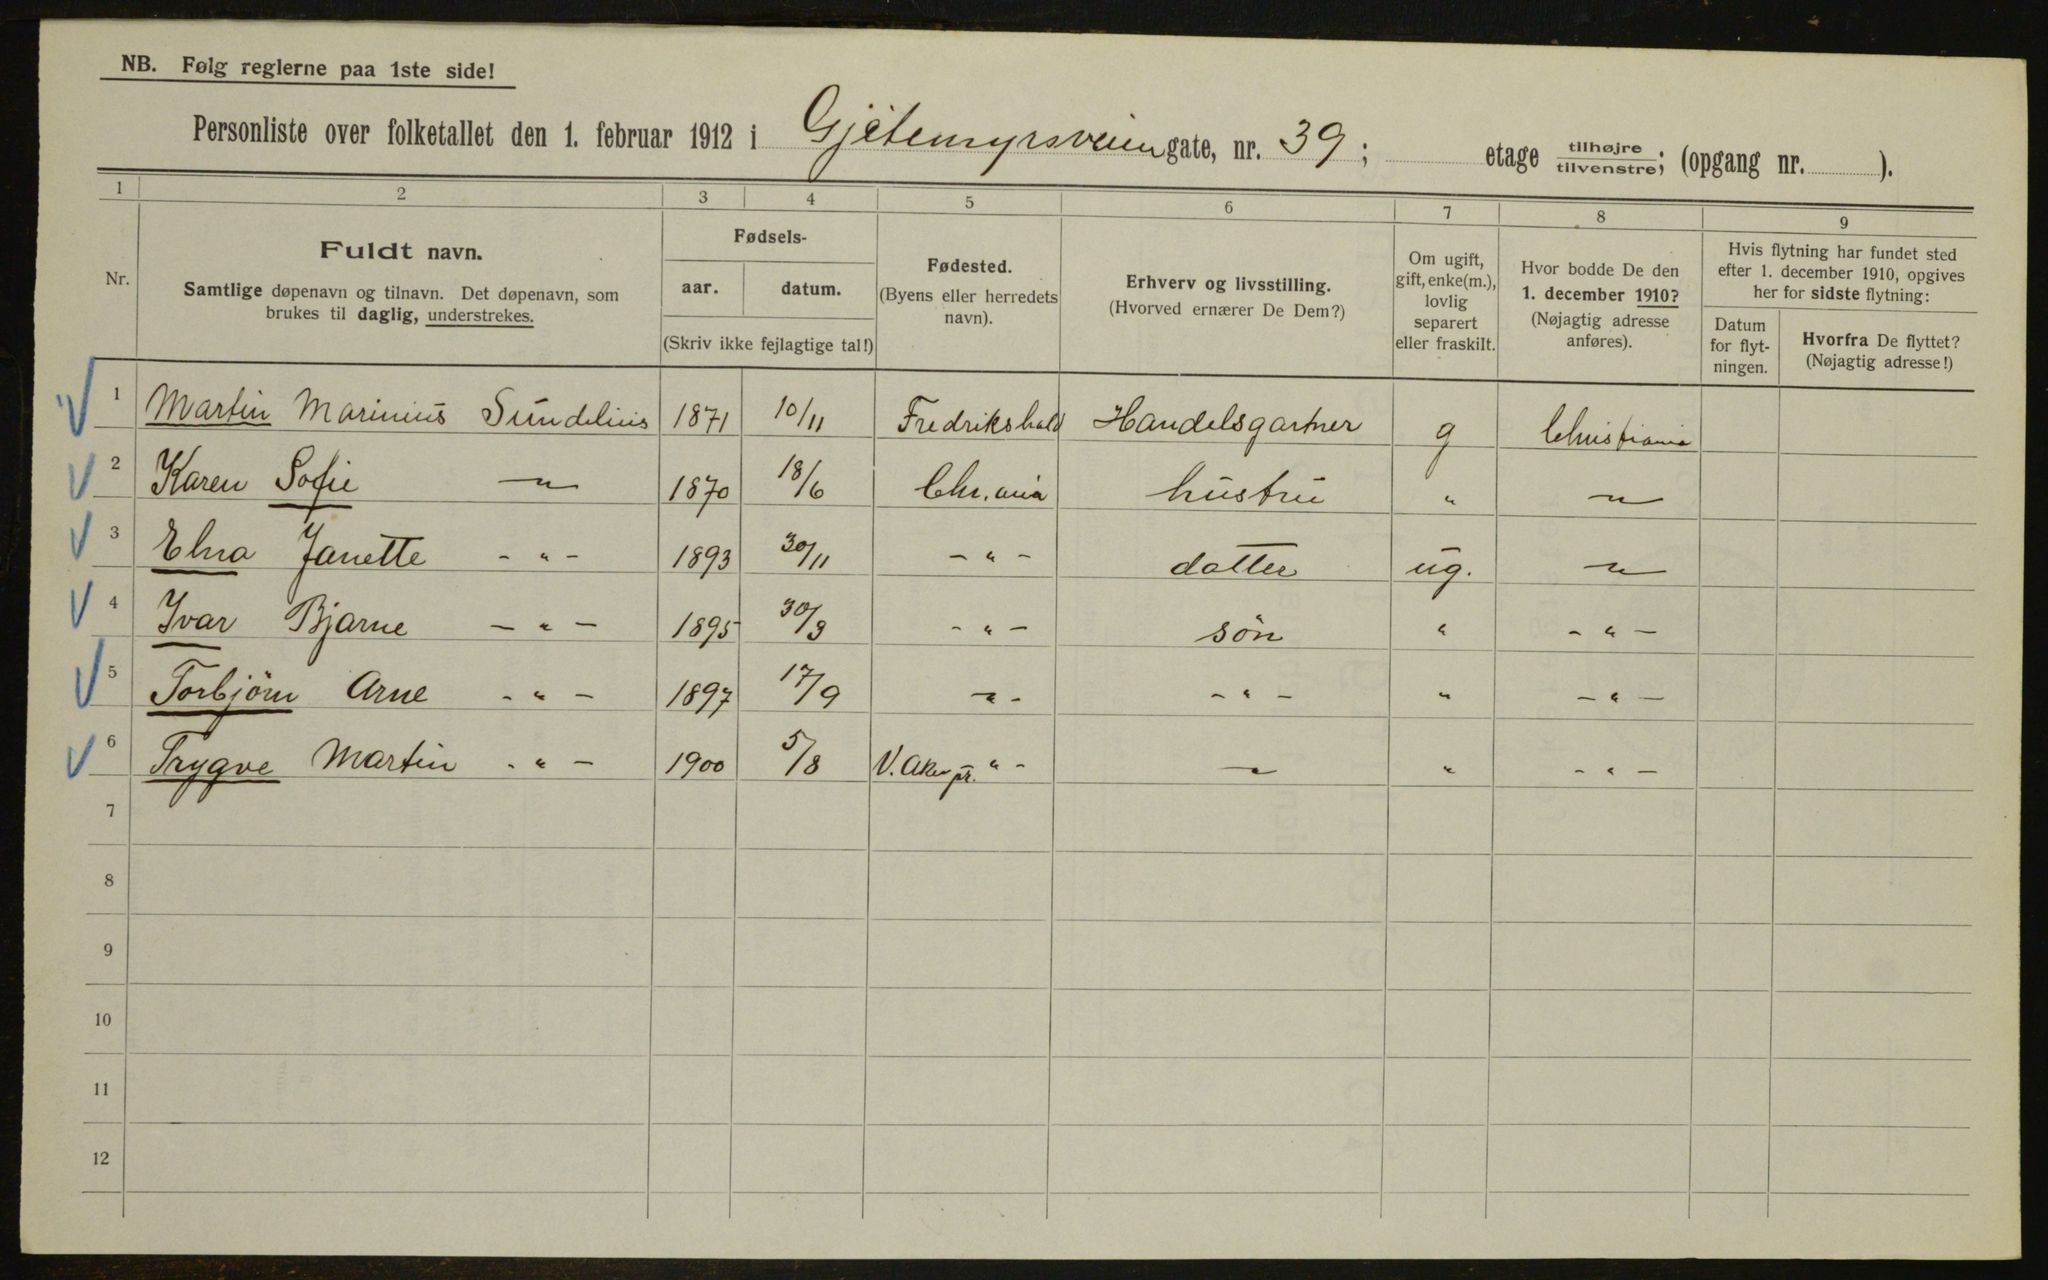 NB. Følg reglerne paa 1ste side!
Personliste over folketallet den 1. februar 1912 i Gjetemyrsveien gate, nr. 39; etage tilhøjre/tilvenstre; (opgang nr. ).
1 2 3 4 5 6 7 8 9
Nr.
Fuldt navn.
Samtlige døpenavn og tilnavn. Det døpenavn, som
brukes til daglig, understrekes.
Fødsels-
aar. datum.
(Skriv ikke fejlagtige tal!)
Fødested.
(Byens eller herredets
navn).
Erhverv og livsstilling.
(Hvorved ernærer De Dem?)
Om ugift,
gift, enke(m.),
lovlig
separert
eller fraskilt.
Hvor bodde De den
1. december 1910?
(Nøjagtig adresse
anføres).
Hvis flytning har fundet sted
efter 1. december 1910, opgives
her for sidste flytning:
Datum
for flyt-
ningen.
Hvorfra De flyttet?
(Nøjagtig adresse!)
1 Martin Marinius Sundelius 1871 10/11 Fredrikshald Handelsgartner g Christiania
2 Karen Sofie " 1870 18/6 Chr.ania hustru " "
3 Elna Janette - " - 1893 30/11 - " - datter ug. "
4 Ivar Bjarne - " - 1895 30/9 - " - søn " - " -
5 Torbjörn Arne - " - 1897 17/9 - " - - " - " - " -
6 Trygve Martin - " - 1900 5/8 V. Aker pr. " - " " - " -
7
8
9
10
11
12